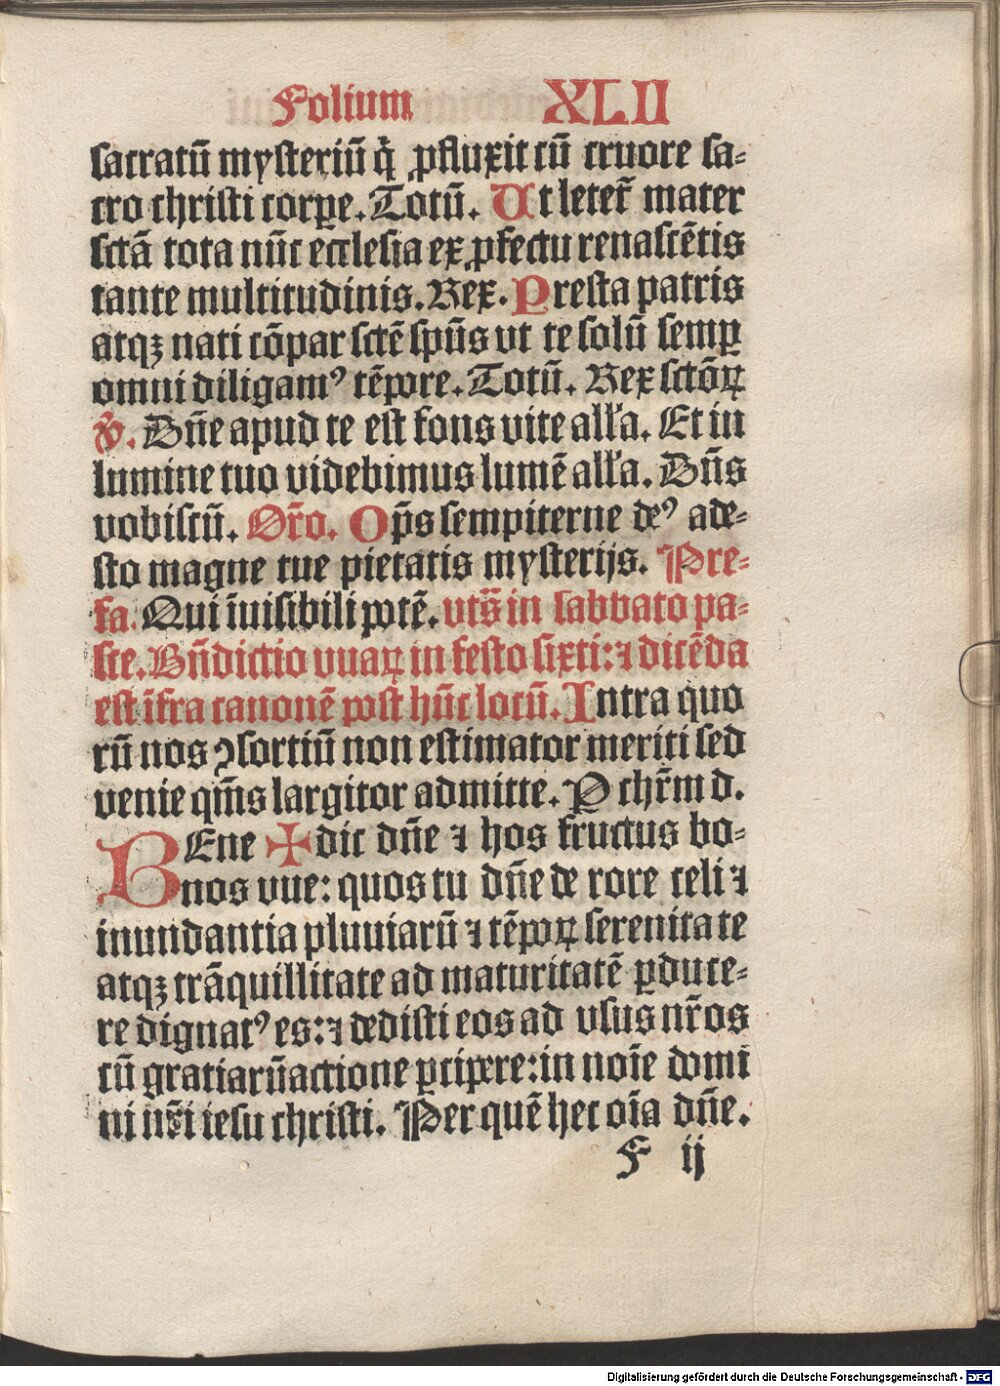 Folium XLII
sacratū mysteriū q̇ ꝓfluxit cū cruore sa⸗
cro christi corꝑe. Totū. Ut letet᷑ mater
sctā tota nūc ecclesia ex ꝓfectu renascētis
tante multitudinis. Rex. Presta patris
atqꝫ nati cōpar sctē spūs vt te solū semꝑ
omni diligamꝰ tēpore. Totū. Rex sctōꝝ
℣. Dn̄e apud te est fons vite all'a. Et in
lumine tuo videbimus lumē all'a. Dn̄s
vobiscū. Or̄o. Op̄s sempiterne deꝰ ade⸗
sto magne tue pietatis mysterijs. Pre⸗
fa. Qui īuisibili potē. vts̄ in sabbato pa⸗
sce. Bn̄dictio vuaꝝ in festo sixti: ⁊ dicēda
est īfra canonē post hūc locū. Intra quo
rū nos ꝯsortiū non estimator meriti sed
venie qm̄s largitor admitte. P chr̄m d.
BEne ✠ dic dn̄e ⁊ hos fructus bo⸗
nos vue: quos tu dn̄e de rore celi ⁊
inundantia pluuiarū ⁊ tēpoꝝ serenitate
atqꝫ trāquillitate ad maturitatē ꝑduce⸗
re dignatꝰ es: ⁊ dedisti eos ad vsus nr̄os
cū gratiarūactione ꝑcipere: in noīe domi
ni nr̄i iesu christi. Per quē hec oīa dn̄e.
F ij
Digitalisierung gefördert durch die Deutsche Forschungsgemeinschaft - DFG